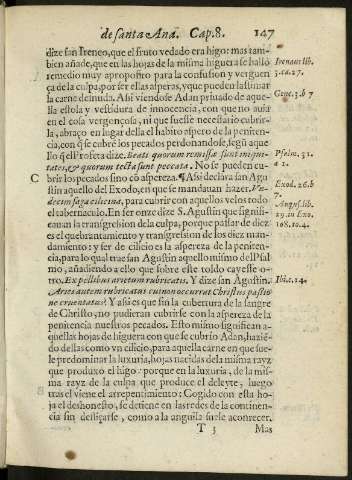 de santa Aná. Cap. 8. 147
dize san Ireneo, que el fruto vedado era higo: mas tam-
bien añade, que en las hojas de la misma higuera se halló
remedio muy aproposito para la confusion y verguen
ça de la culpa, por ser ellas asperas, y que pueden lastimar
la carne desnuda. Ahi viendose Adan priuado de aque-
lla estola y vestidura de innocencia, con que no auia
en el cosa vergonçosa, ni que fuesse necessario cubrir-
la, abraço en lugar della el habito aspero de la peniten-
cia, con q̃ se cubrẽ los pecados perdonandose, segũ aque
llo q̃ el Profeta dize. Beati quorum remissæ sunt iniqui-
tates, & quorum tecta sunt peccata. No se pueden cu-
brir los pecados sino cõ aspereza. ¶ Asi declara san Agu
stin aquello del Exodo, en que se mandauan hazer. Vn-
decim saga cilicina, para cubrir con aquellos velos todo
el tabernaculo. En ser onze dize S. Agustin que signifi-
cauan la transgression de la culpa, porque passar de diez
es el quebrantamiento y transgression de los diez man-
damientos: y ser de silicio es la aspereza de la peniten-
cia, para lo qual trae san Agustin aquello mismo del Psal
mo, añadiendo a ello que sobre este toldo cayesse o-
tro. Ex pellibus arietum rubricatis. Y dize san Agustin.
Aries autem rubricatus cui non occurrat Christus passio
ne cruentatus? Y assi es que sin la cubertura de la sangre
de Christo, no pudieran cubrirse con la aspereza de la
penitencia nuestros pecados. Esto mismo significan a-
quellas hojas de higuera con que se cubrio Adan, hazié
do dellas como vn cilicio, para aquella carne en que sue-
le predominar la luxuria, hojas nacidas de la misma rayz
que produxo el higo: porque en la luxuria, de la mis-
ma rayz de la culpa que produce el deleyte, luego
tras el viene el arrepentimiento: Cogido con esta ho-
ja el deshonesto, se detiene en las redes de la continen-
cia sin deslizarse, como a la anguila suele acontecer.
T 3 Mas
C
Irenæus lib.
3. ca. 37.
Gene. 3. b 7
Psalm. 31.
a 1.
Exod. 26. b
7.
August. lib.
29. in Exo.
108. to. 4.
Ibi. c. 14.